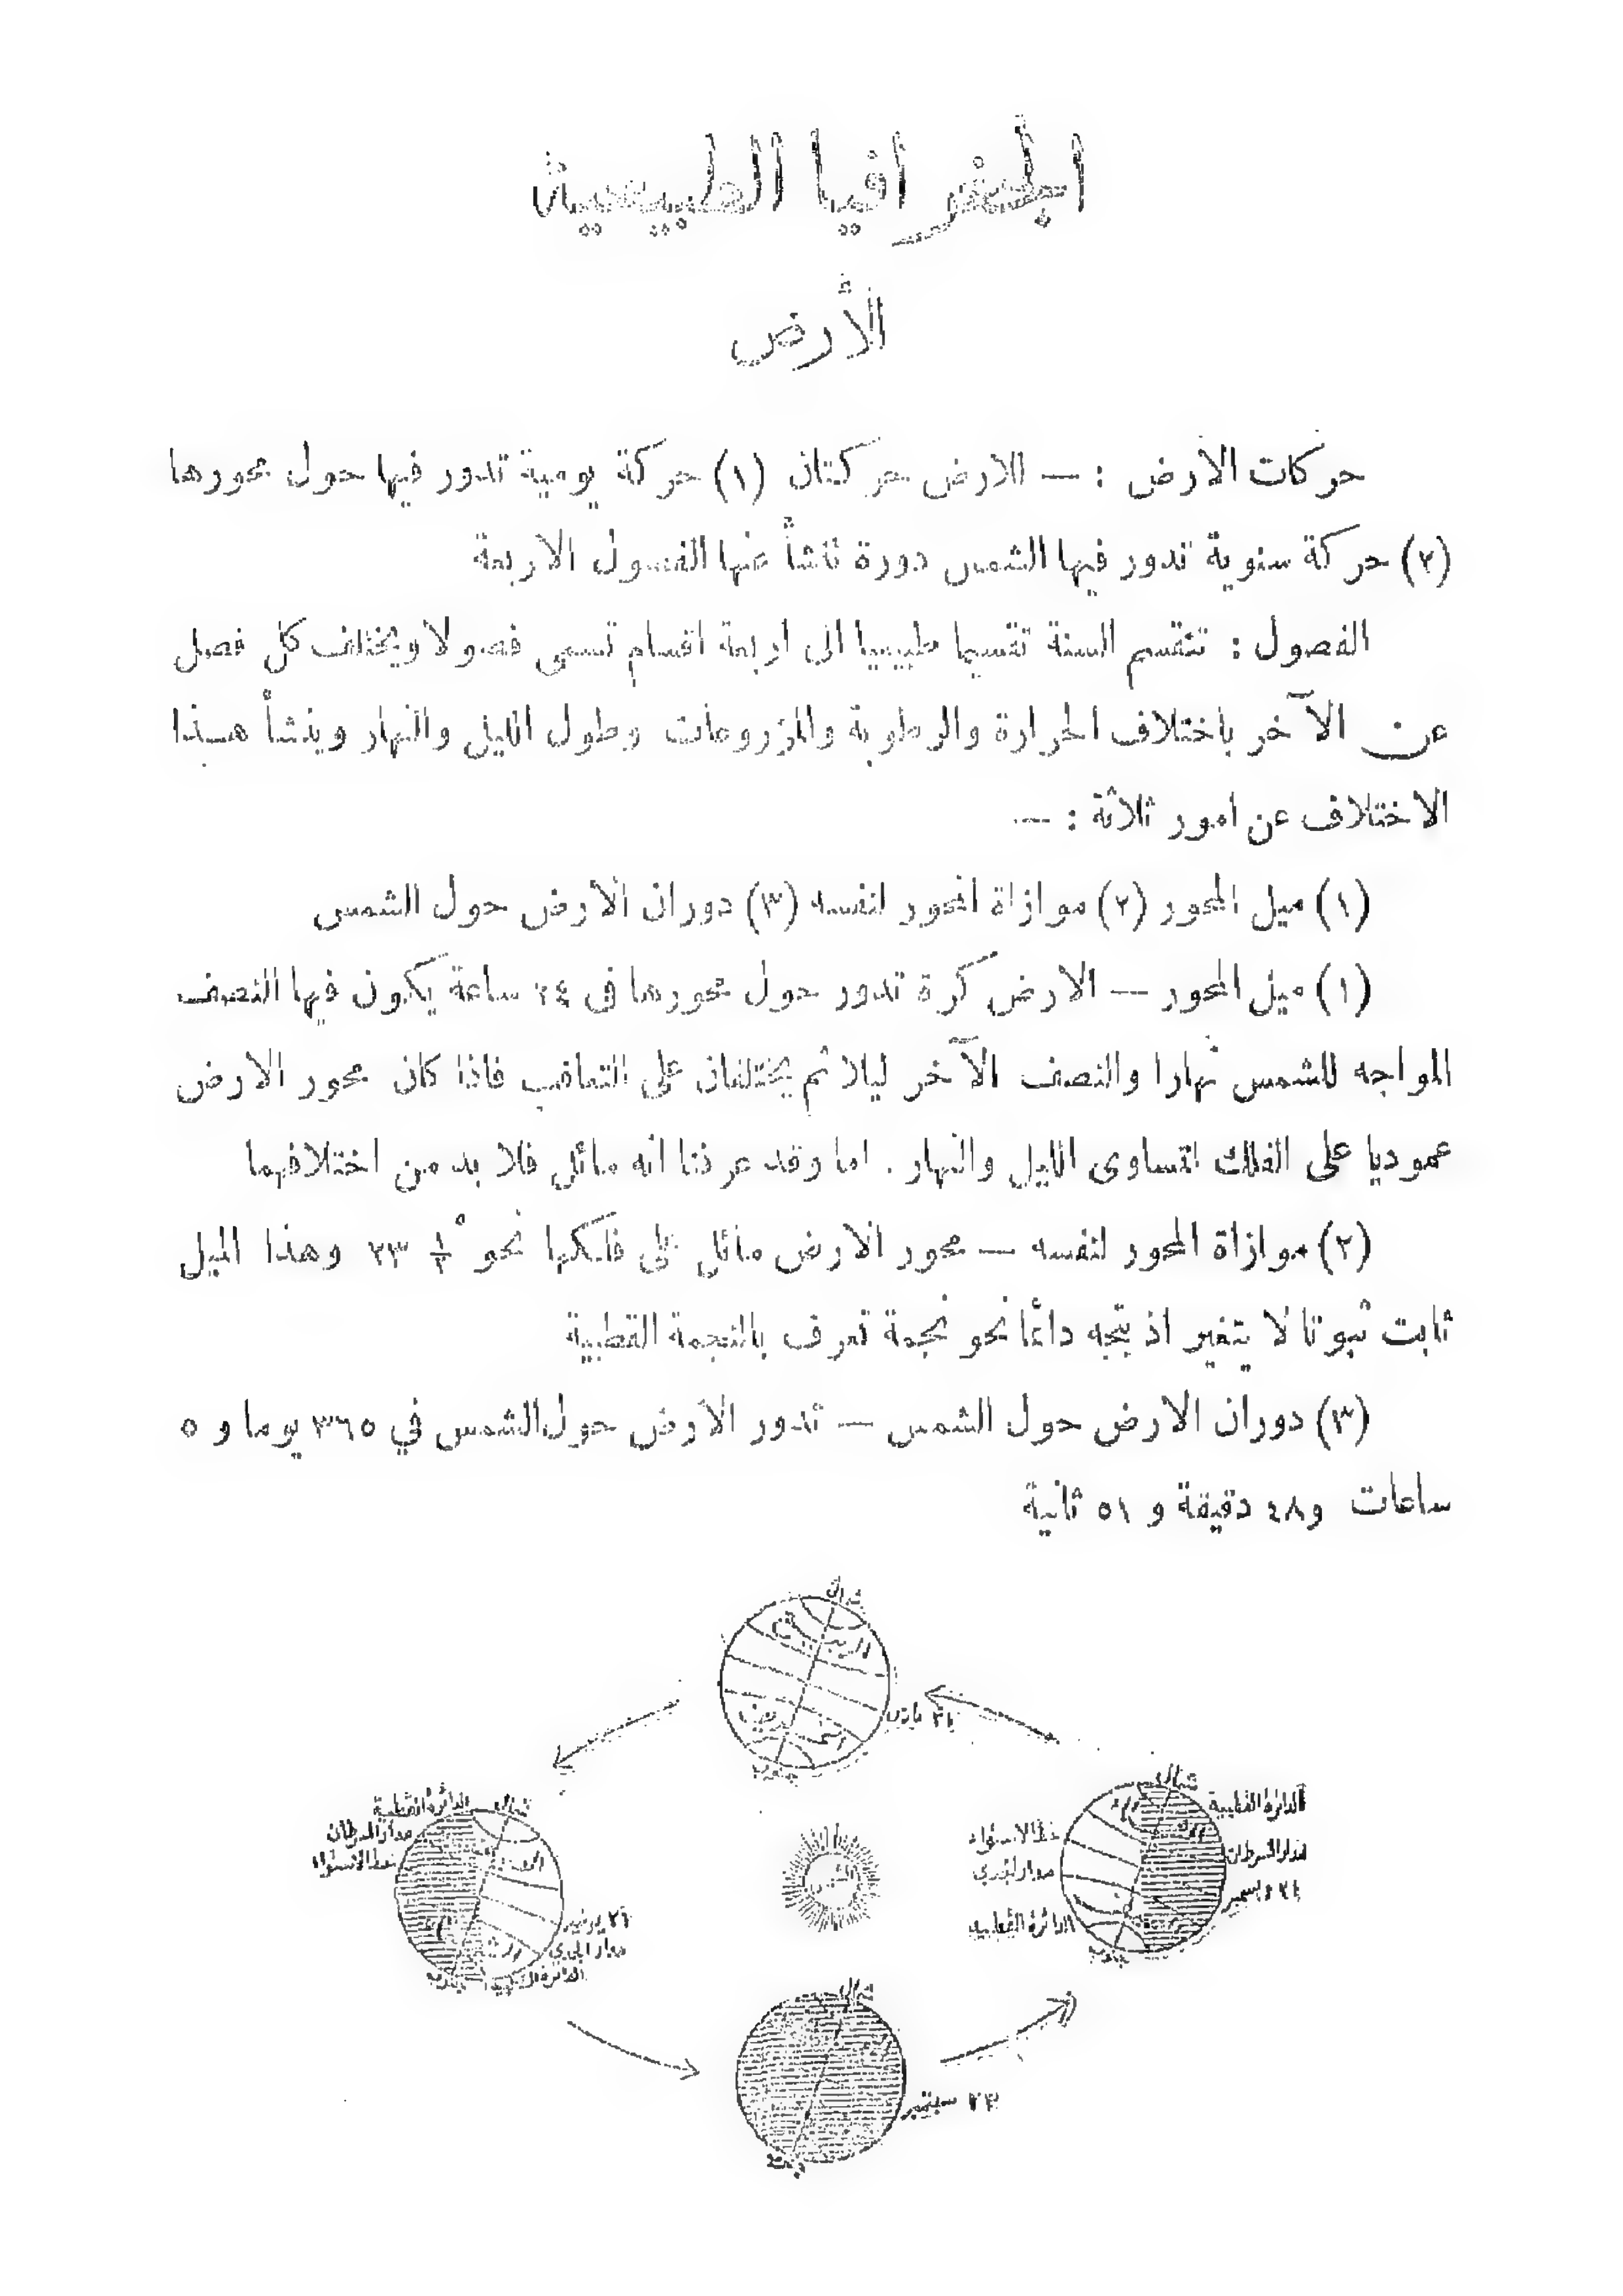 الجغرافيا الطبيعية
الأرض
حركات الأرض : — للارض حركتان (١) حركة يومية تدور فيها حول محورها
(٢) حركة سنوية تدور فيها الشمس دورة تنشأ عنها الفصول الاربعة
الفصول : تنقسم السنة تقسيما طبيعيا الى اربعة اقسام تسمى فصولا ويختلف كل فصل
عن الآخر باختلاف الحرارة والرطوبة والمزروعات وطول الليل والنهار وينشأ هذا
الاختلاف عن امور ثلاثة : —
(١) ميل المحور (٢) موازاة المحور لنفسه (٣) دوران الأرض حول الشمس
(١) ميل المحور — الارض كرة تدور حول محورها فى ٢٤ ساعة يكون فيها النصف
المواجه للشمس نهارا والنصف الآخر ليلا ثم يختلفان على التعاقب فاذا كان محور الارض
عموديا على الفلك لتساوى الليل والنهار . اما وقد عرفنا انه مائل فلا بد من اختلافهما
(٢) موازاة المحور لنفسه — محور الارض مائل على فلكها نحو ½° ٢٣ وهذا الميل
ثابت ثبوتا لا يتغير اذ يتجه دائما نحو نجمة تعرف بالنجمة القطبية
(٣) دوران الارض حول الشمس — تدور الأرض حول الشمس في ٣٦٥ يوما و ٥
ساعات و٤٨ دقيقة و ٥١ ثانية
شمال
الربيع
الخريف
٢١ مارس
جنوب
شمال
الدائرة القطبية
مدار السرطان
خط الاستواء
٢١ يونيه
مدار الجدي
جنوب
الشمس
شمال
الدائرة القطبية
مدار السرطان
خط الاستواء
مدار الجدي
٢١ ديسمبر
الدائرة القطبية
جنوب
شمال
٢٣ سبتمبر
جنوب